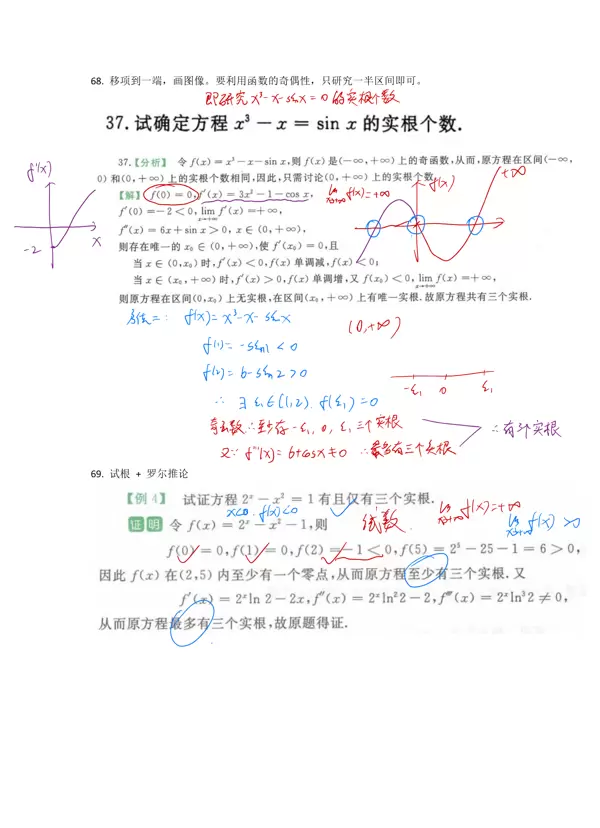 68. 移项到一端，画图像。要利用函数的奇偶性，只研究一半区间即可。
即研究 x³-x-sinx=0 的实根个数
37.试确定方程 x³－x＝sin x 的实根个数.
37.【分析】 令 f(x)＝x³－x－sin x,则 f(x)是(－∞,＋∞)上的奇函数,从而,原方程在区间(－∞,
0)和(0,＋∞)上的实根个数相同,因此,只需讨论(0,＋∞)上的实根个数.
【解】 f(0)＝0,f′(x)＝3x²－1－cos x,
f′(0)＝－2＜0,lim f′(x)＝＋∞,
x→+∞
f″(x)＝6x＋sin x＞0, x∈(0,＋∞),
则存在唯一的 x₀∈(0,＋∞),使 f′(x₀)＝0,且
当 x∈(0,x₀)时,f′(x)＜0,f(x)单调减,f(x)＜0;
当 x∈(x₀,＋∞)时,f′(x)＞0,f(x)单调增,又 f(x₀)＜0,lim f(x)＝＋∞,
x→+∞
则原方程在区间(0,x₀)上无实根,在区间(x₀,＋∞)上有唯一实根.故原方程共有三个实根.
f'(x)
-2
x
lim f(x)=+∞
x→+∞
f(x)
+∞
(0,+∞)
方法二: f(x)=x³-x-sinx
f(1)=-sin1<0
f(2)=6-sin2>0
∴ ∃ ξ₁∈(1,2). f(ξ₁)=0
-ξ₁ 0 ξ₁
奇函数∴至少存-ξ₁, 0, ξ₁三个实根
又∵ f'''(x)=6+cosx≠0 ∴最多有三个实根
∴有3个实根
69. 试根 + 罗尔推论
【例4】 试证方程 2ˣ－x²＝1有且仅有三个实根.
x<0. f(x)<0
lim f(x)=+∞
lim f(x)>0
证明 令 f(x)＝2ˣ－x²－1,则
f(0)＝0,f(1)＝0,f(2)＝－1＜0,f(5)＝2⁵－25－1＝6＞0,
因此 f(x)在(2,5)内至少有一个零点,从而原方程至少有三个实根.又
f′(x)＝2ˣln 2－2x,f″(x)＝2ˣln²2－2,f‴(x)＝2ˣln³2≠0,
从而原方程最多有三个实根,故原题得证.